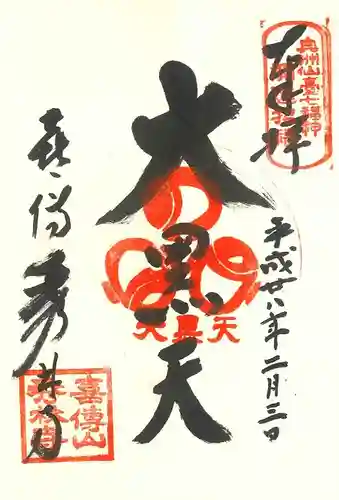 奉拝
奥州仙臺七福神
平成廿八年二月三日
大黒天
大黒天
喜傳山
秀林寺